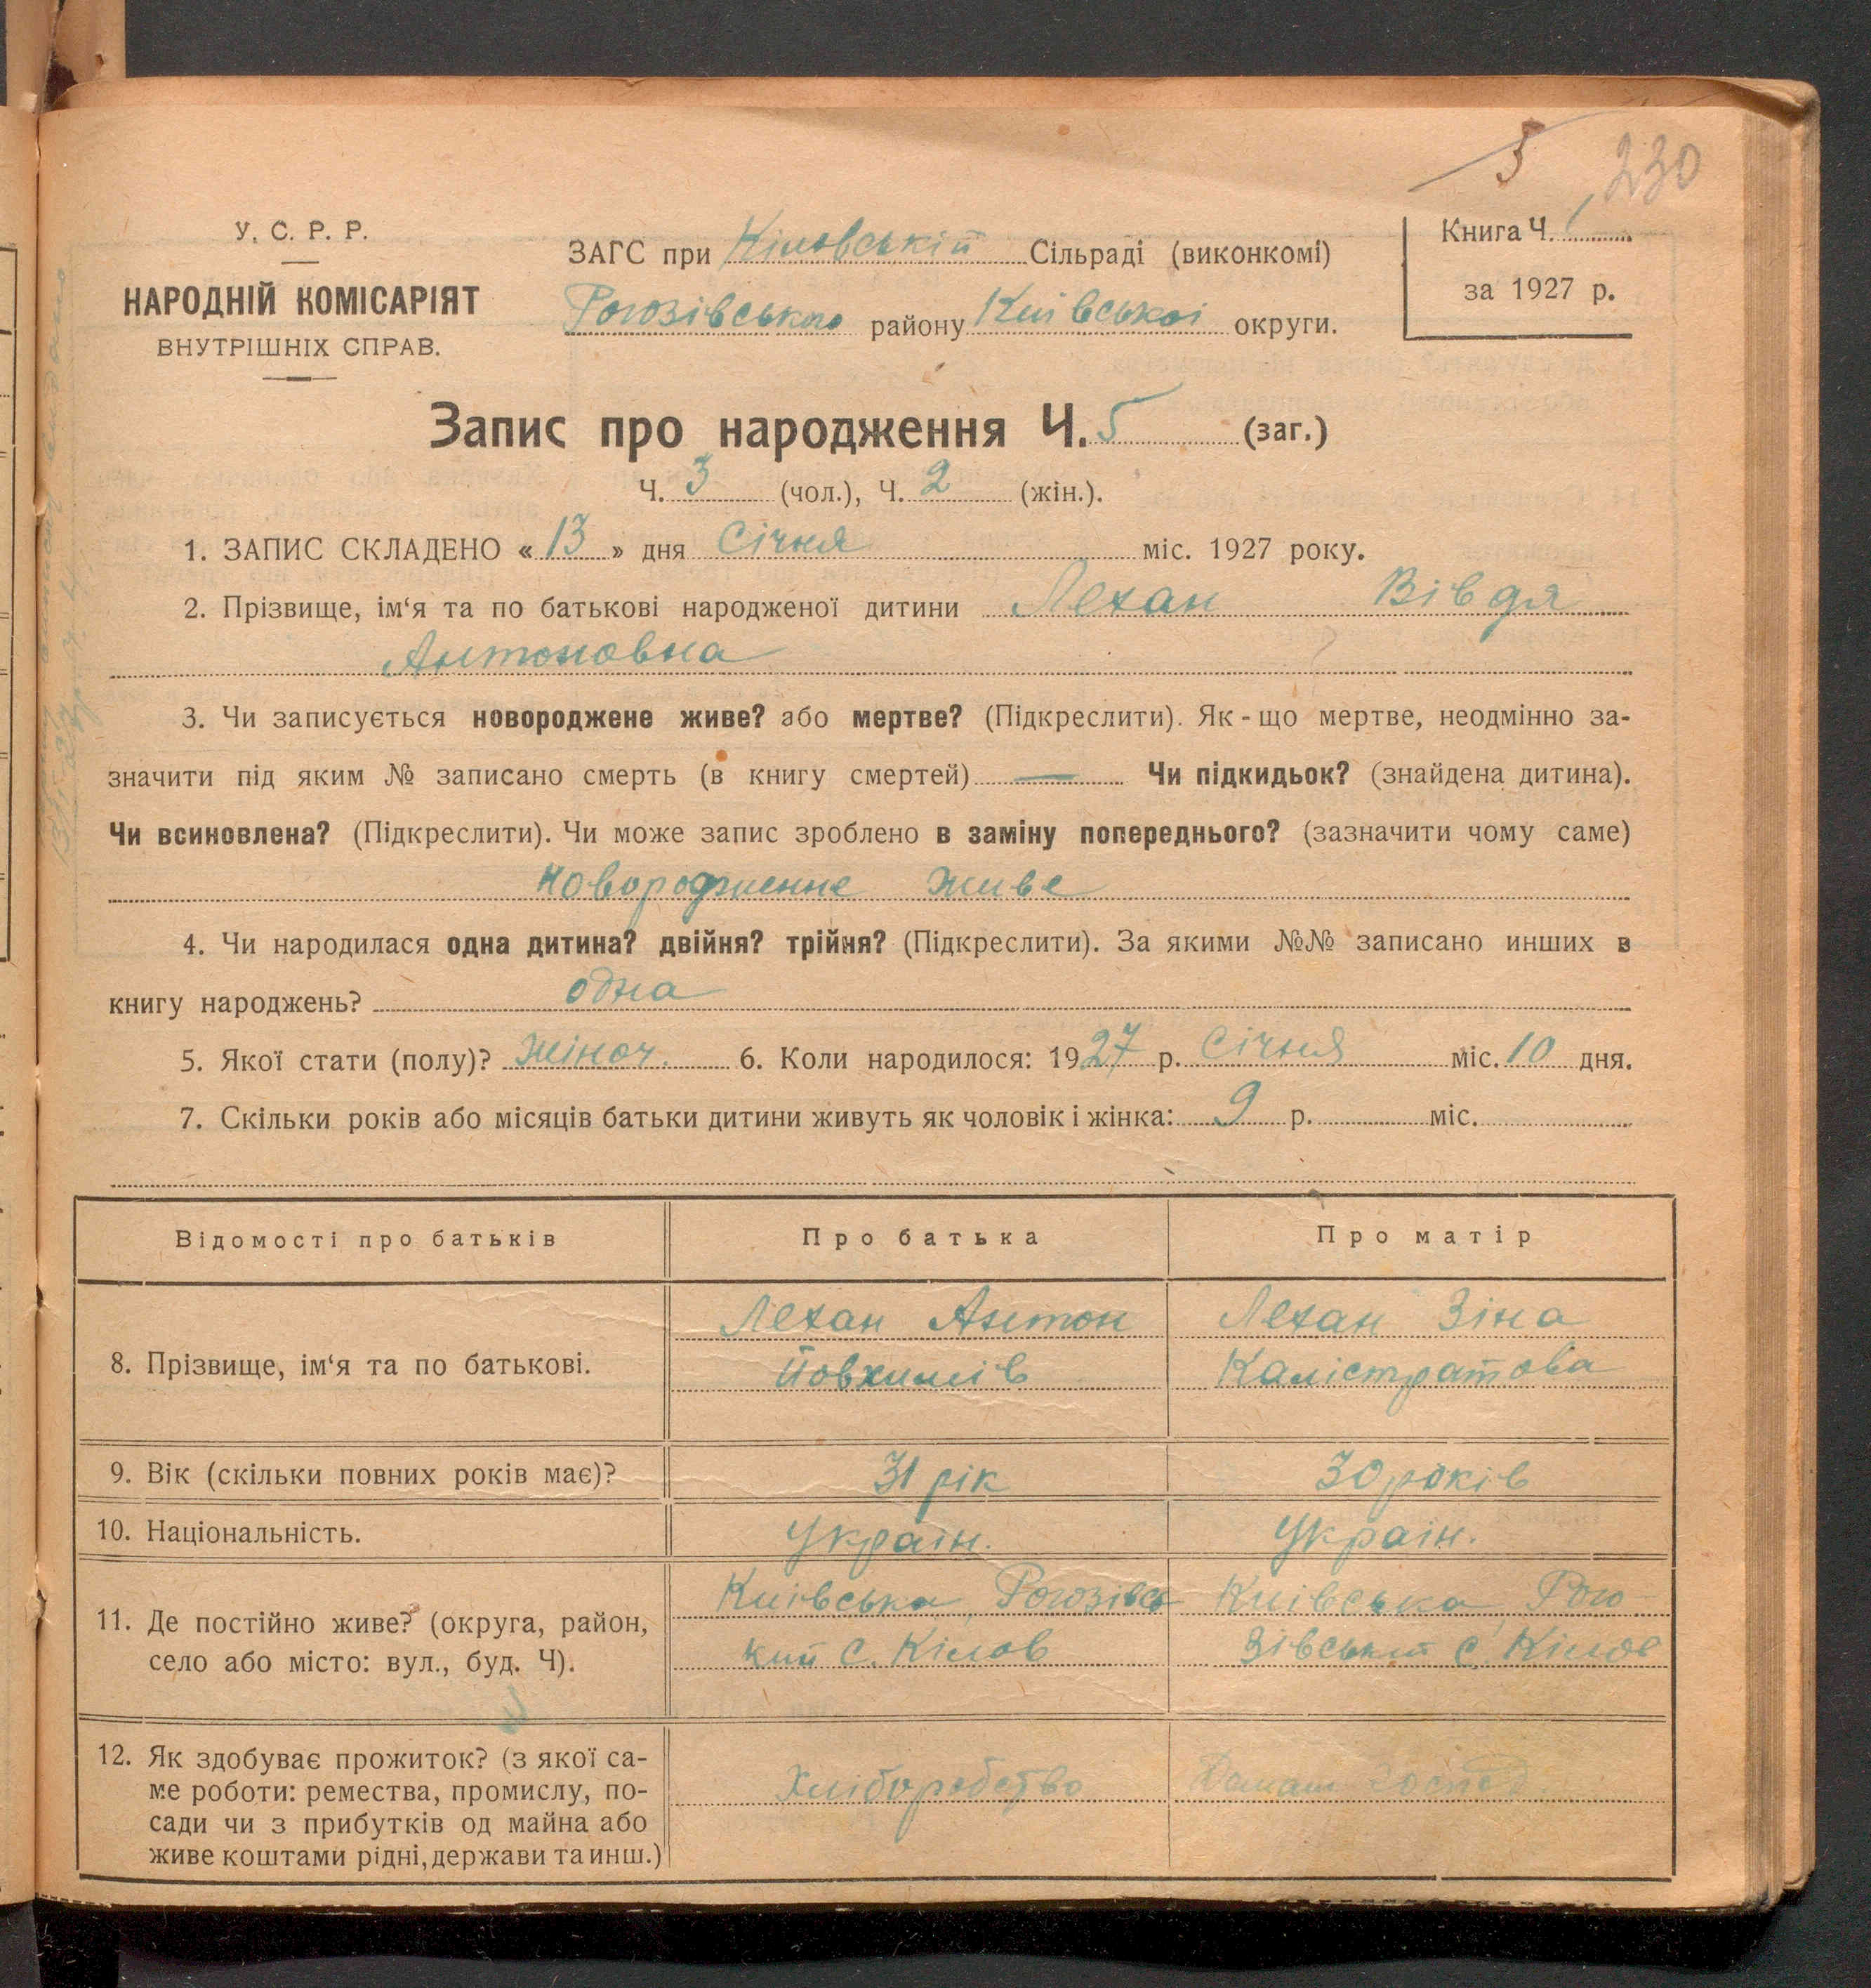 5 230
У. С. Р. Р.
НАРОДНІЙ КОМІСАРІЯТ
ВНУТРІШНІХ СПРАВ.
ЗАГС при Кіловській Сільраді (виконкомі)
Рогозівського району Київської округи.
Книга Ч. 1
за 1927 р.
Запис про народження Ч. 5 (заг.)
Ч. 3 (чол.), Ч. 2 (жін.).
1. ЗАПИС СКЛАДЕНО « 13 » дня Січня міс. 1927 року.
2. Прізвище, ім‘я та по батькові народженої дитини Лехан Вівдя
Антоновна
3. Чи записується новороджене живе? або мертве? (Підкреслити). Як-що мертве, неодмінно за-
значити під яким № записано смерть (в книгу смертей) — Чи підкидьок? (знайдена дитина).
Чи всиновлена? (Підкреслити). Чи може запис зроблено в заміну попереднього? (зазначити чому саме)
новородженне живе
4. Чи народилася одна дитина? двійня? трійня? (Підкреслити). За якими №№ записано инших в
книгу народжень? одна
5. Якої стати (полу)? жіноч. 6. Коли народилося: 1927 р. Січня міс. 10 дня.
7. Скільки років або місяців батьки дитини живуть як чоловік і жінка: 9 р. міс.
Відомості про батьків Про батька Про матір
8. Прізвище, ім‘я та по батькові.
Лехан Антон
Йовхимів
Лехан Зіна
Калістратова
9. Вік (скільки повних років має)? 31 рік 30 років
10. Національність. Украін. Украін.
11. Де постійно живе? (округа, район,
село або місто: вул., буд. Ч).
Київська, Рогозівсь
кий с. Кілов
Київська, Рого
зівський с. Кілов
12. Як здобуває прожиток? (з якої са-
ме роботи: ремества, промислу, по-
сади чи з прибутків од майна або
живе коштами рідні, держави та инш.)
Хліборобство
Домаш господ.